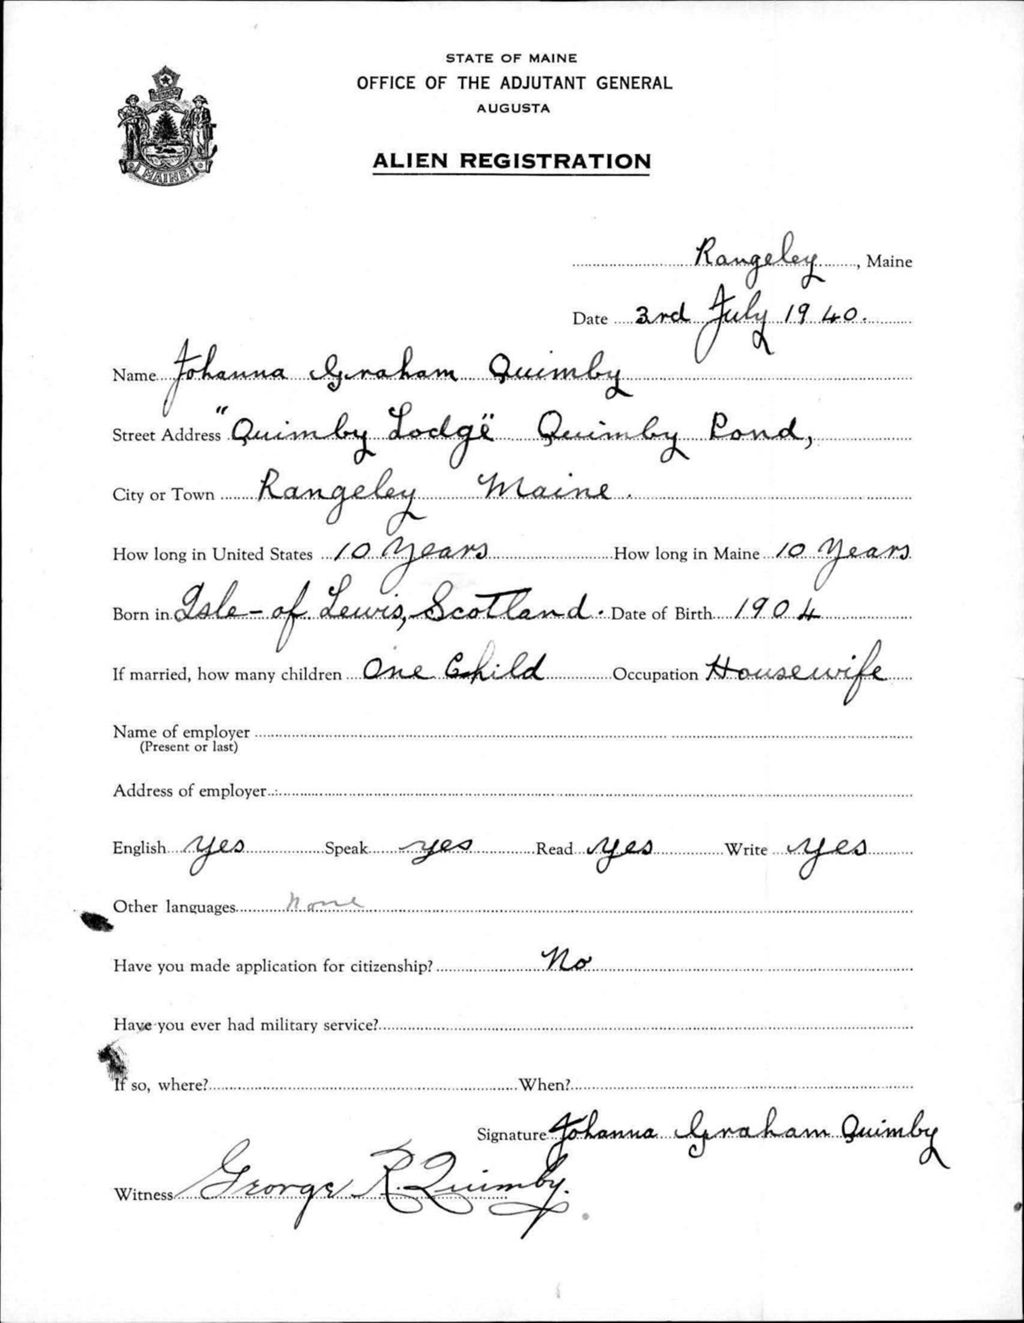 STATE OF MAINE
OFFICE OF THE ADJUTANT GENERAL
AUGUSTA
MAINE
ALIEN REGISTRATION
Rangeley, Maine
Date 3rd July 1940.
Name Johanna Graham Quimby
Street Address "Quimby Lodge" Quimby Pond,
City or Town Rangeley Maine.
How long in United States 10 Years How long in Maine 10 Years
Born in Isle-of. Lewis, Scotland. Date of Birth 1904
If married, how many children One Child Occupation Housewife
Name of employer
(Present or last)
Address of employer
English yes Speak yes Read yes Write yes
Other languages none
Have you made application for citizenship? No
Have you ever had military service?
If so, where? When?
Signature Johanna Graham Quimby
Witness George R. Quimby.